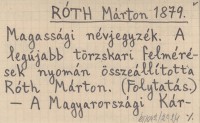 RÓTH Márton 1879.
Magassági névjegyzék. A
legújabb törzskari felméré-
sek nyomán összeállította
Róth Márton. (Folytatás.)
— A Magyarországi Kár-